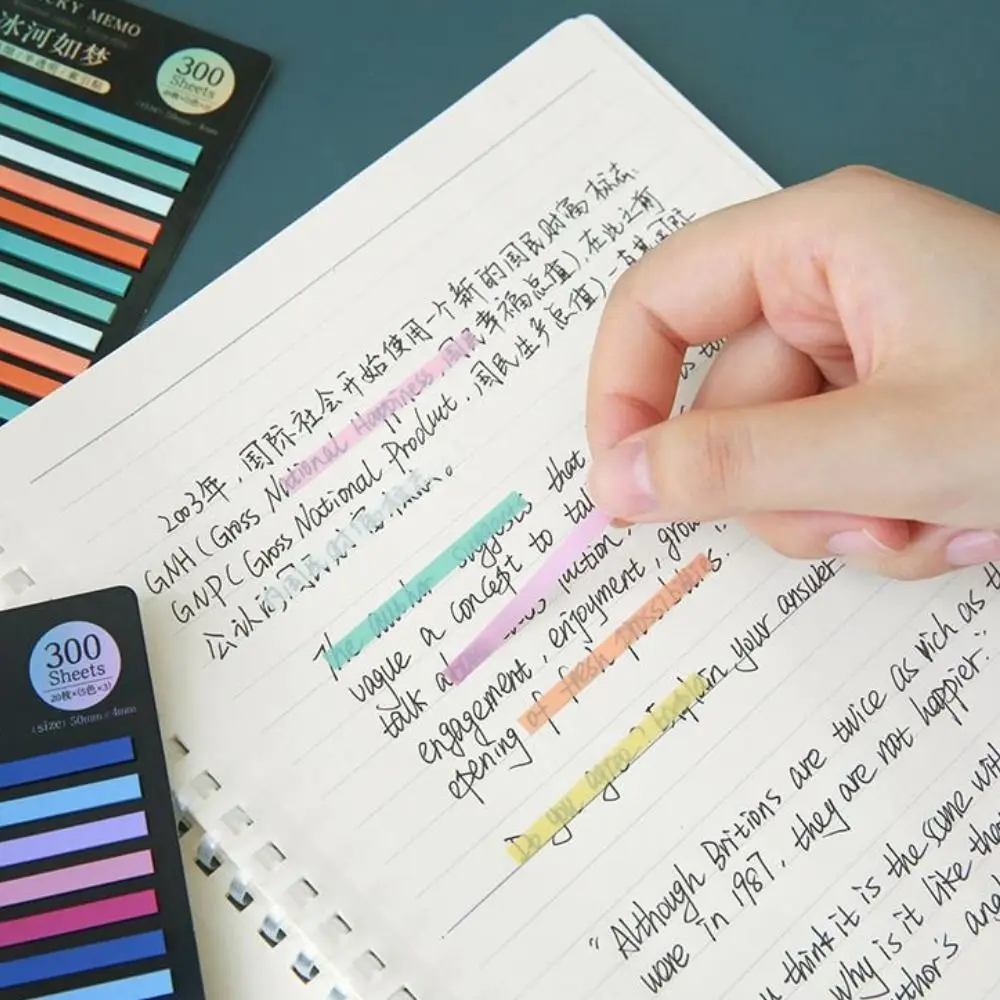 CKY MEMO
冰河如梦
300
Sheets
300
Sheets
20枚×(5色×3)
(size) 50mm×4mm
2003年,国际社会开始使用一个新的国民财富标志.
GNH (Gross National Happiness,国民幸福总值),在此之前
GNP (Gross National Product,国民生产总值)一直是国际
公认的国民财富标志。
The author suggests that
vague a concept to tal
talk about
engagement, enjoyment, grow
opening of fresh possibilities.
Do you agree? Explain your answer
"Although Britions are twice as rich as th
ware in 1987, they are not happier."
think it is the same with
Why is it like the
thor's and